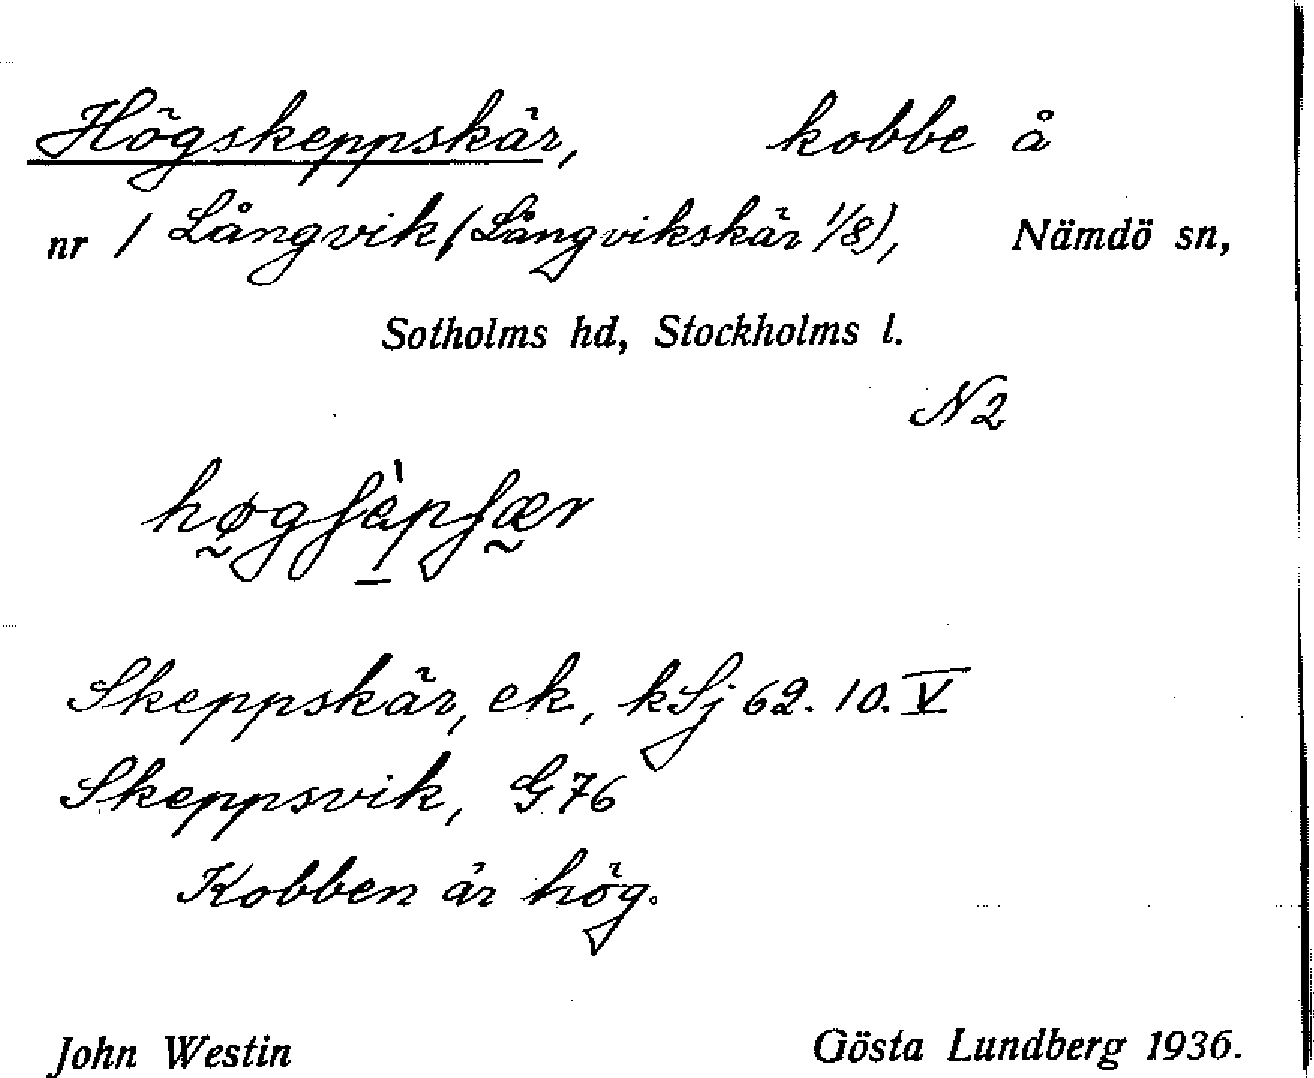 Högskeppskär, kobbe å
nr 1 Långvik (Långvikskär 1/8), Nämdö sn,
Sotholms hd, Stockholms l.
N2
Skeppskär, ek, kSj 62. 10. V
Skeppsvik, G 76
Kobben är hög.
John Westin Gösta Lundberg 1936.